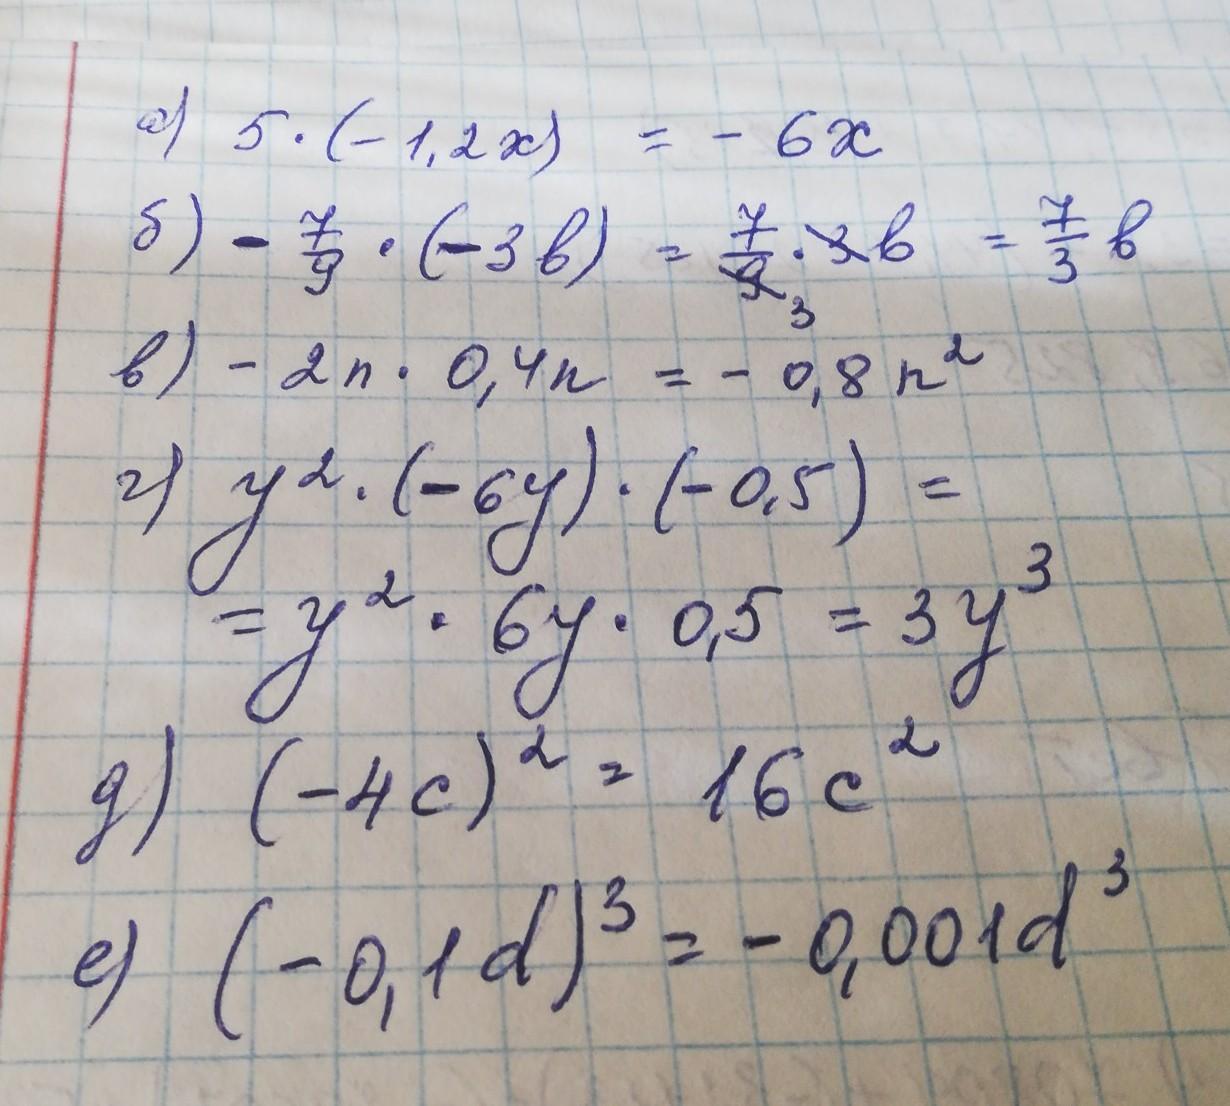 а) 5 · (- 1,2x) = - 6x
б) - 7/9 · (- 3b) = 7/9 3 · 3b = 7/3 b
в) - 2n · 0,4n = - 0,8n²
г) y² · (- 6y) · (- 0,5) =
= y² · 6y · 0,5 = 3y³
д) (-4c)² = 16c²
е) (- 0,1d)³ = - 0,001d³